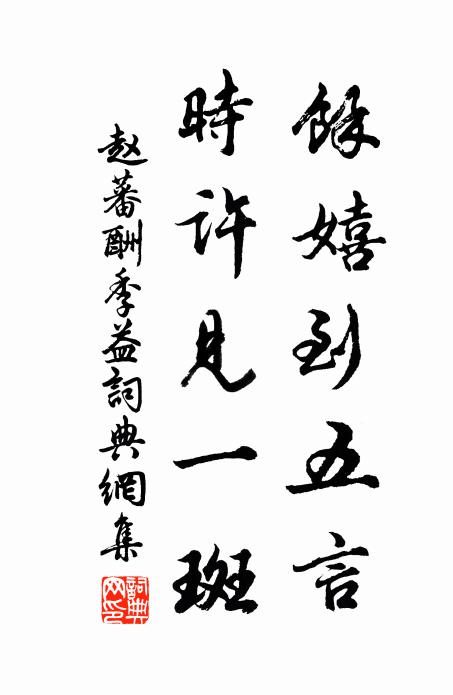 餘嬉到五言
時許見一斑
赵蕃酬季益詞典網集